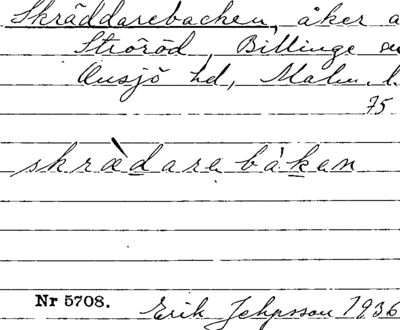 Skräddarebacken, åker a
Ströröd, Billinge su
Onsjö hd, Malm. l.
75
skrädare båken
Nr 5708. Erik Jehpsson 1936